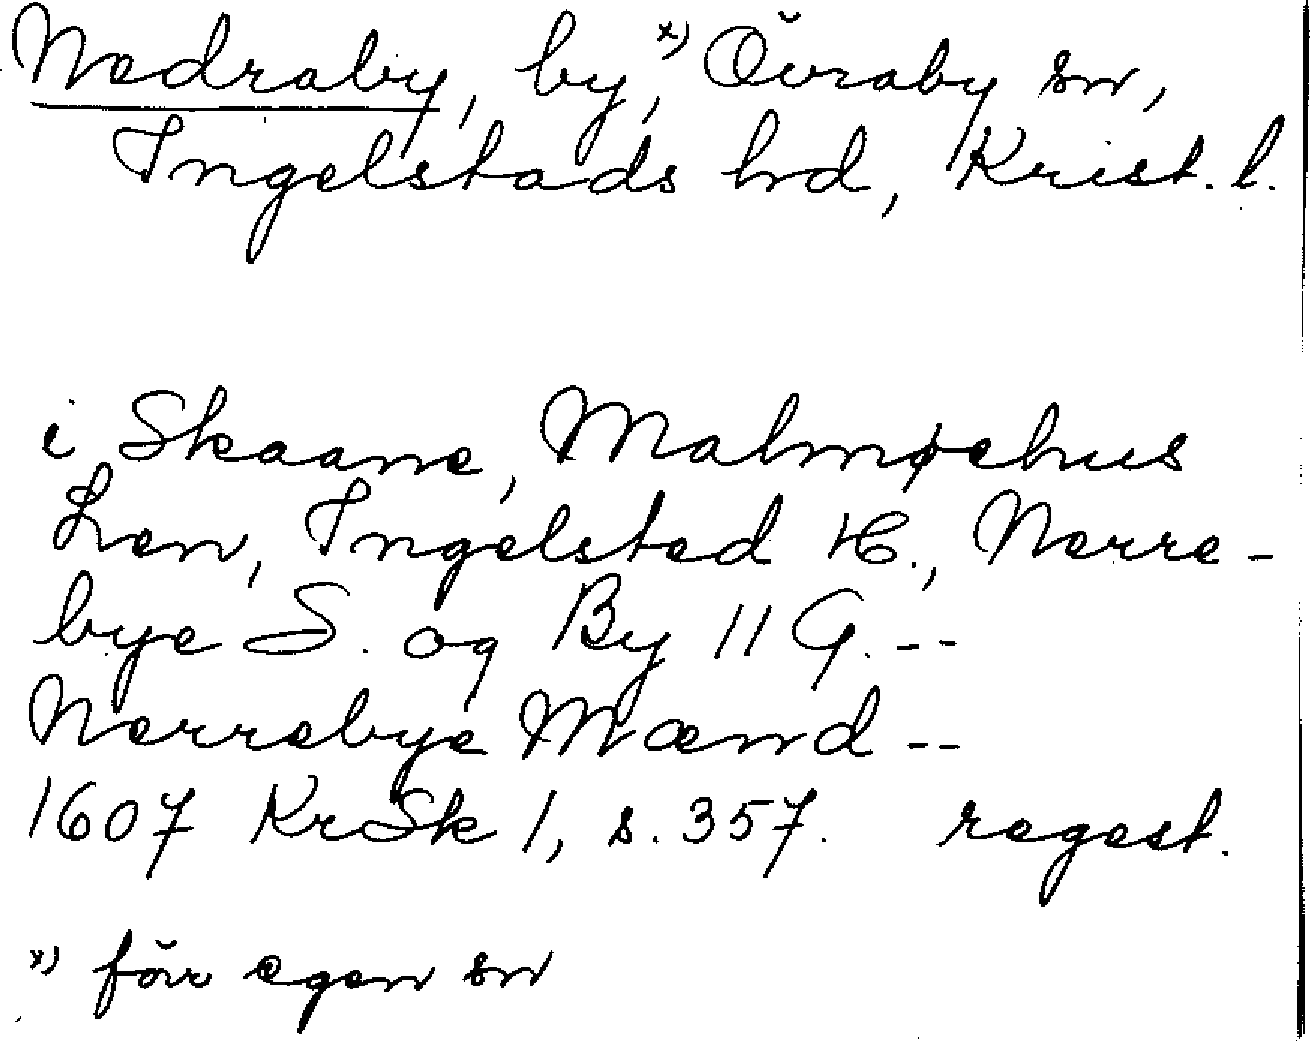 Nedraby, by, x) Övraby sn,
Ingelstads hd, Krist. l.
i Skaane, Malmøehus
Len, Ingelsted H., Nerre-
bye S. og By 11 G. --
Nerrebye Mænd --
1607 KrSk 1, s. 357. regest.
x) förr egen sn